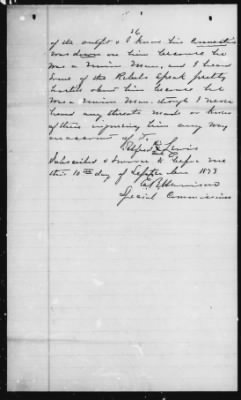 16
of the outfit & I know his
was down on him because he
was a Union Man, and I heard
some of the Rebels speak pretty
harsh about him because he
was a Union Man though I never
heard any threats made or knew
of their injuring him any way
on account of it.
Alfred Lewis
Subscribed & sworn to before me
this 10th day of September 1873
Special Commissioner